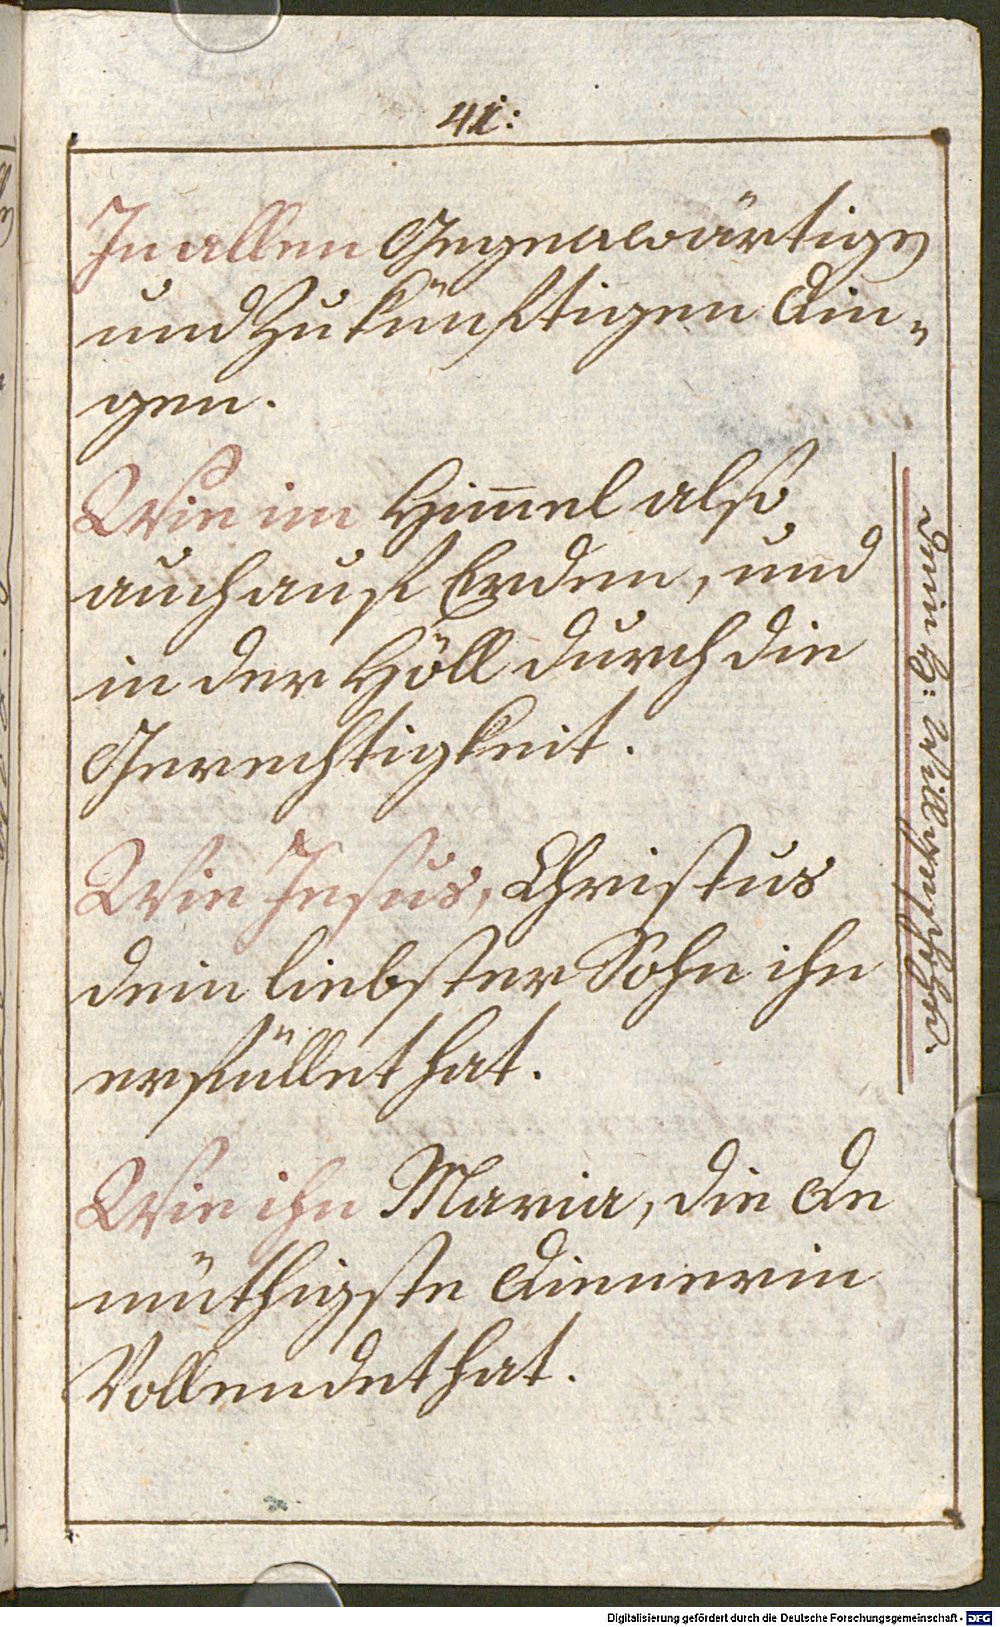 41:
In allen Gegenwärtigen
und Zukünftigen Din„
gen.
Wie im Himel also
auch auf Erden, und
in der Höll durch die
Gerechtigkeit.
Wie Jesus, Christus
dein liebster Sohn ihn
erfüllet hat.
Wie ihn Maria, die De
müthigste Dienerin
Vollendet hat.
Dein h: Will geschehe.
Digitalisierung gefördert durch die Deutsche Forschungsgemeinschaft - DFG